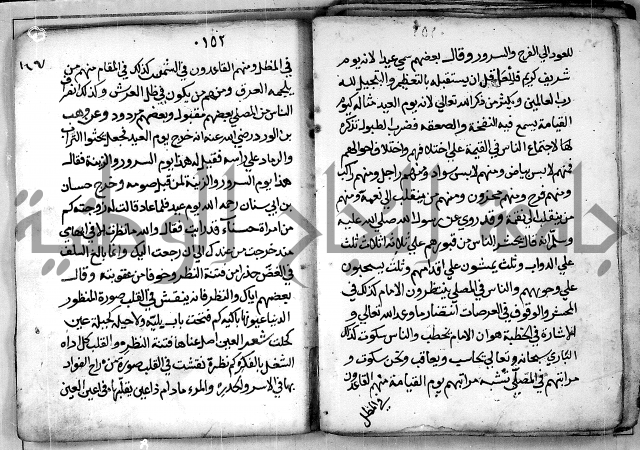 للعود الي الفرح والسرور وقال بعضهم سمي عيدا لانه يوم
شريف كريم فلأجل ان يستقبله بالتعظيم والتبجيل لله
رب العالمين ويكثر من ذكر الله تعالي لانه يوم العيد شاله كيوم
القيامة يسمع فيه النفخة والصعقه فضرب الطبول تذكرة
لها لاجتماع الناس في القيمة علي اختلافهم واختلاف احوالهم
فمنهم لابس بياض ومنهم لابس سواد ومنهم راجل ومنهم راكب
ومنهم فرح ومنهم محزون ومنهم من ينقلب الي نعمة ومنهم
من ينقلب الي نقمة وقد روي عن رسول الله صلي الله عليه
وسلم انه قال يحشر الناس من قبورهم علي ثلاثة اثلاث ثلث
علي الدواب وثلث يمشون علي اقدامهم وثلث يسحبون
علي وجوههم والناس في المصلي ينتظرون الامام كذلك في
المحشر والوقوف في العرصات انتظار ما وعد الله تعالي و
الاشارة في الخطبة هو ان الامام يخطب والناس سكوت كذلك
الباري سبحانه وتعالي يحاسب ويعاقب ونحن سكوت و
مراتبهم في المصلي تشبه مراتبهم يوم القيامة منهم القاعدون
في الظل
٠١٥٢
١٦٧
في الظل ومنهم القاعدون في الشمس كذلك في المقام منهم من
يلجمه العرق ومنهم من يكون في ظل العرش وكذلك انفراف
الناس من المصلي بعضهم مقبول وبعضهم مردود وعن وهب
بن الورد رضي الله عنه انه خرج يوم العيد فجعل يحثوا التراب
والرماد علي راسه فقيل له هذا يوم السرور والزينة فقال
هذا يوم السرور والزينة لمن قبل صومه وخرج حسان
بن ابي سنان رحمه الله يوم عيد فلما عاد قالت له زوجته كم
من امراة حسناء قد رايت فقال والله ما نظرت الا في ابهامي
منذ خرجت من عندك الي ان رجعت اليك وانما بالغ السلف
في الغض حذرا من فتنة النظر وخوفا من عقوبته وقال
بعضهم اياك والنظر فانه ينقش في القلب صورة المنظور
الشغل بالفكر كم نظرة نقشت في القلب صورة من راح الفواد
بها في الاسر والمرء ما دام ذا عين يقلبها في اعين العين
جامعة النجاح الوطنية